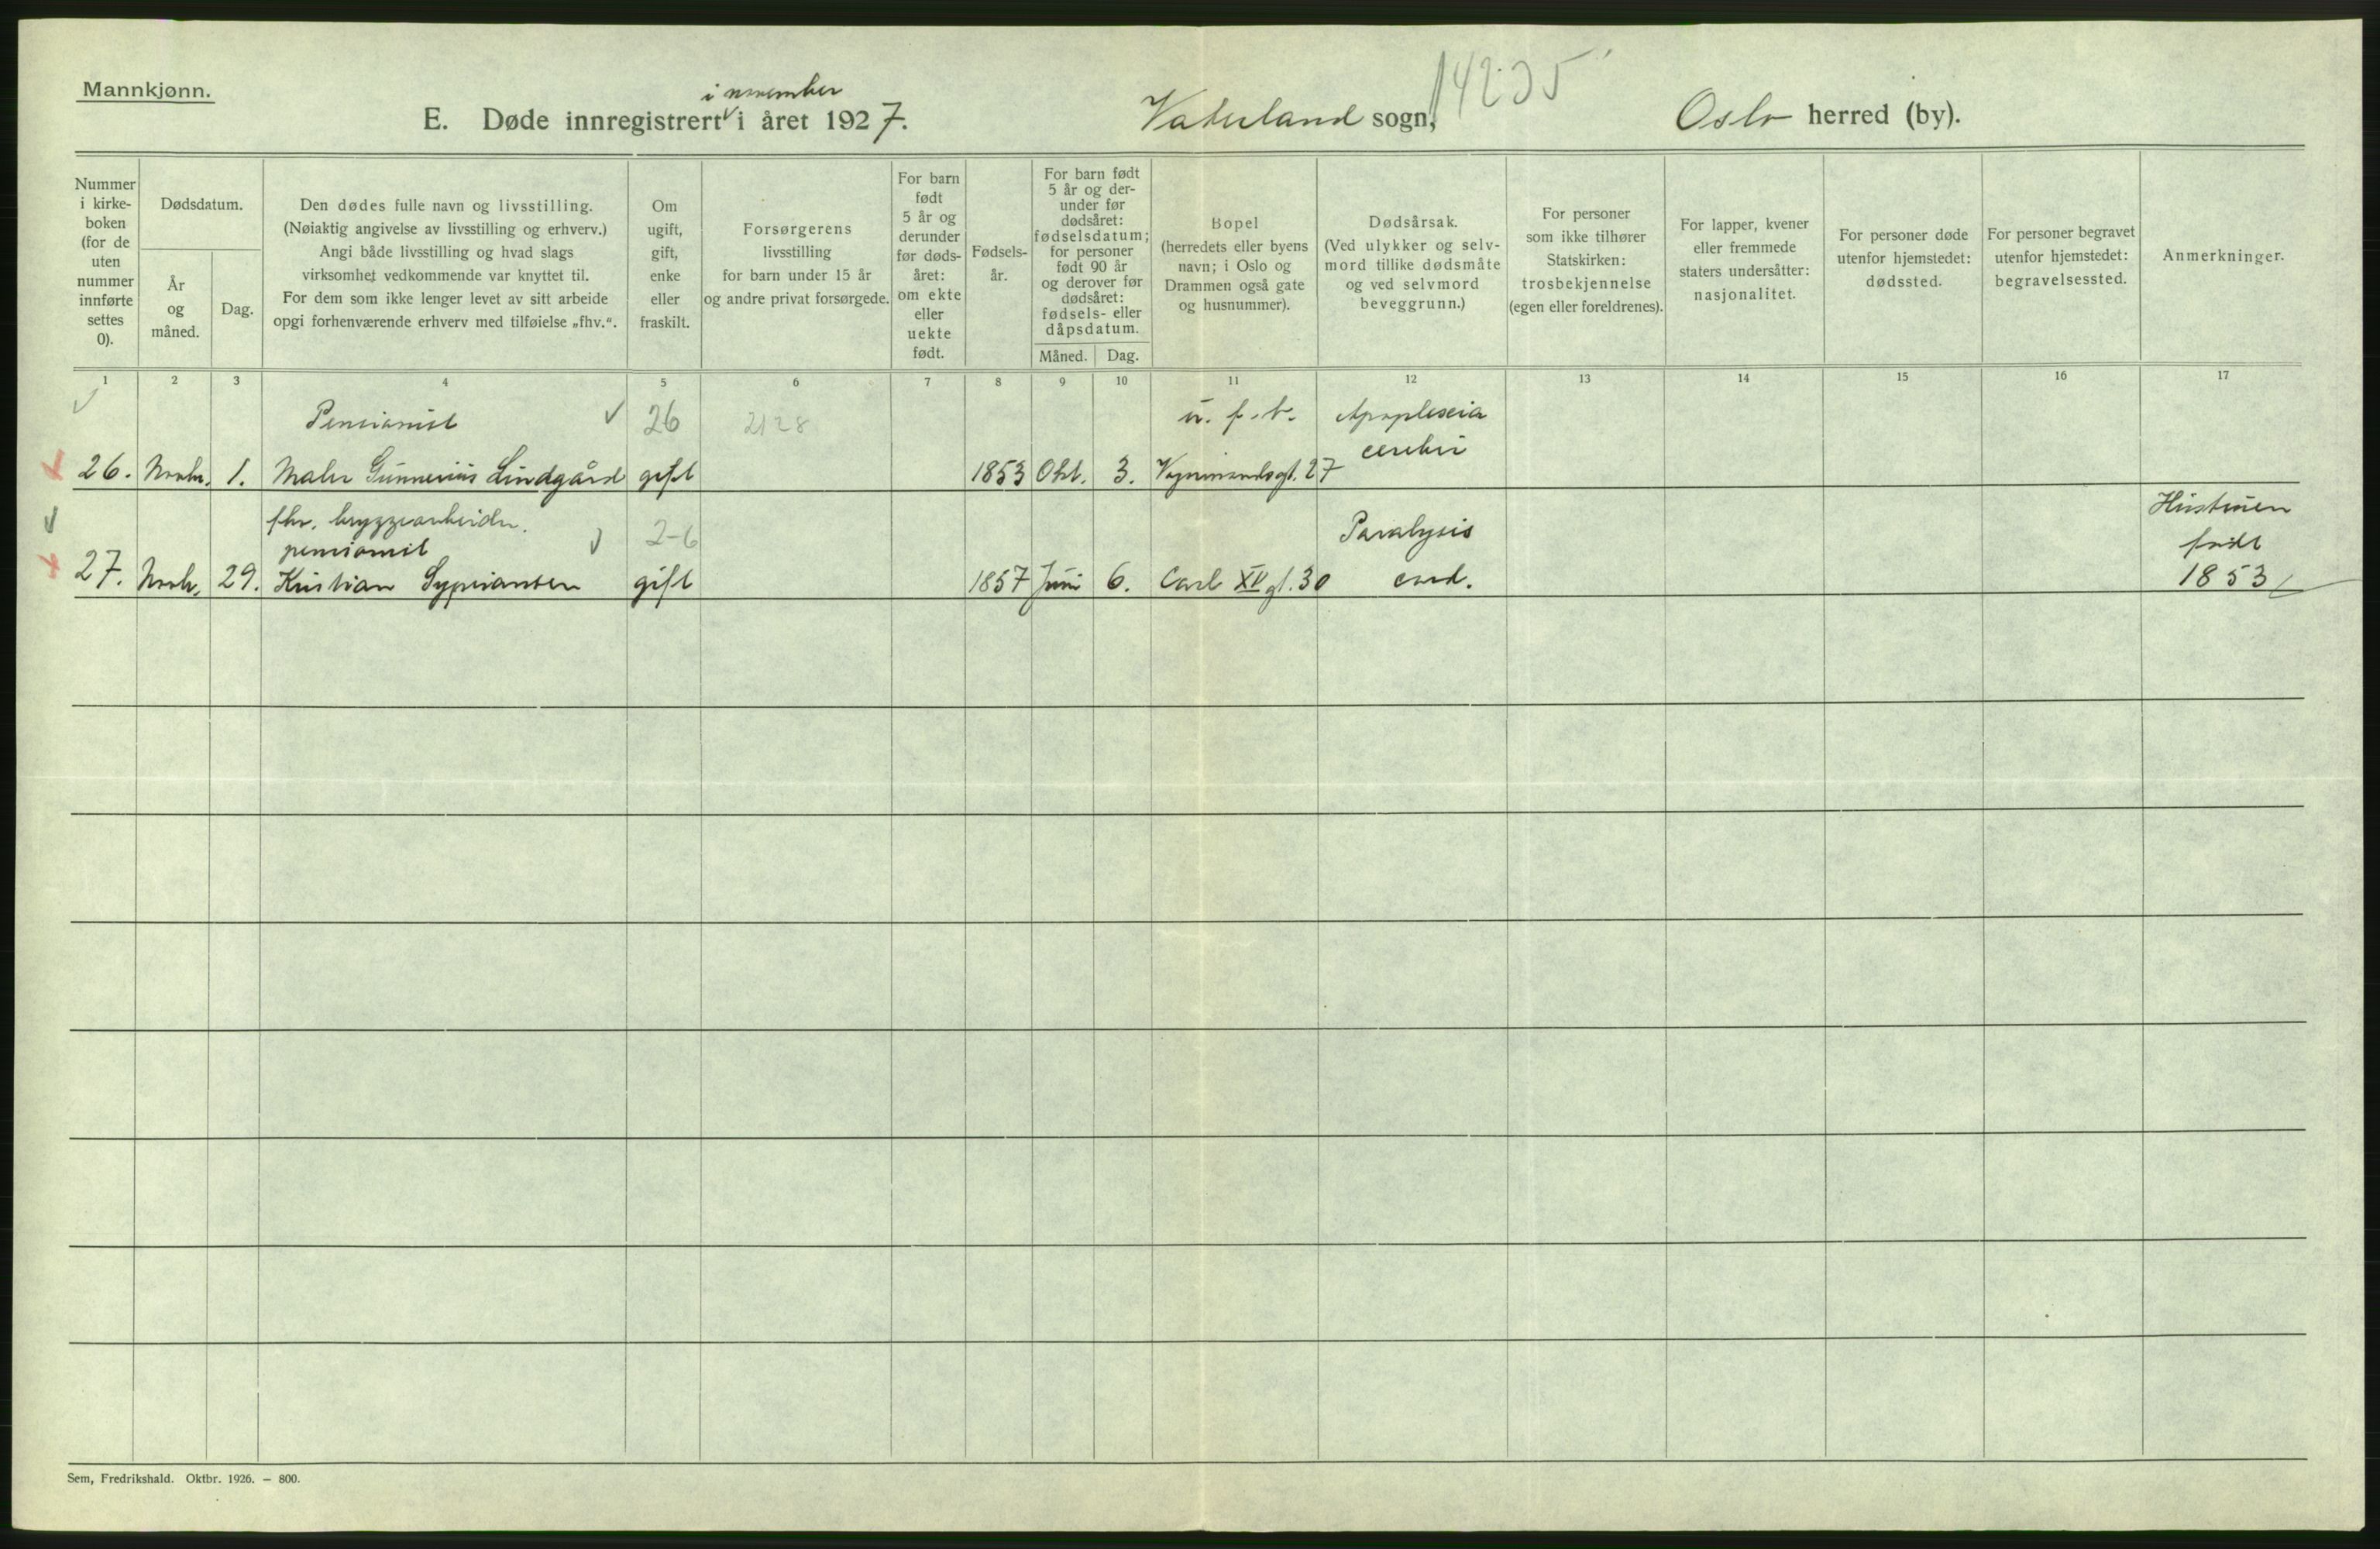 Mannkjønn.
i november
E. Døde innregistrert i året 1927.
Vaterland sogn,
14235
Oslo herred (by).
Nummer i kirke- boken (for de uten nummer innførte settes 0).
Dødsdatum.
År og måned.
Dag.
Den dødes fulle navn og livsstilling.
(Nøiaktig angivelse av livsstilling og erhverv.)
Angi både livsstilling og hvad slags
virksomhet vedkommende var knyttet til.
For dem som ikke lenger levet av sitt arbeide
opgi forhenværende erhverv med tilføielse „fhv.“.
Om ugift, gift, enke eller fraskilt.
Forsørgerens
livsstilling
for barn under 15 år
og andre privat forsørgede.
For barn født 5 år og derunder før døds- året: om ekte eller uekte født.
Fødsels- år.
For barn født 5 år og der- under før dødsåret: fødselsdatum; for personer født 90 år og derover før dødsåret: fødsels- eller dåpsdatum.
Måned. Dag.
Bopel
(herredets eller byens
navn; i Oslo og
Drammen også gate
og husnummer).
Dødsårsak.
(Ved ulykker og selv-
mord tillike dødsmåte
og ved selvmord
beveggrunn.)
For personer
som ikke tilhører
Statskirken:
trosbekjennelse
(egen eller foreldrenes).
For lapper, kvener
eller fremmede
staters undersåtter:
nasjonalitet.
For personer døde
utenfor hjemstedet:
dødssted.
For personer begravet
utenfor hjemstedet:
begravelsessted.
Anmerkninger.
1 2 3 4 5 6 7 8 9 10 11 12 13 14 15 16 17
Pensionist 26 2128 u. f. b. Apoplexia
cerebri
26. Novbr. 1. Maler Gunnerius Lindgård gift 1853 Okt. 3. 27
fhv. bryggearbeider. Hustruen
pensionist 2-6 Paralysis født
27. Novb. 29. Kristian Sypriansen gift 1857 Juni 6. Carl XV gt. 30 cord. 1853
Sem, Fredrikshald. Oktbr. 1926. — 800.